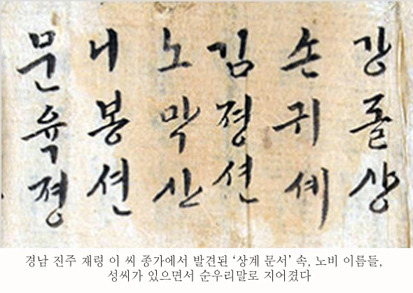 강돌상
손귀셰
김졍션
노막산
니봉션
문육졍
경남 진주 재령 이 씨 종가에서 발견된 ‘상계 문서’ 속, 노비 이름들,
성씨가 있으면서 순우리말로 지어졌다